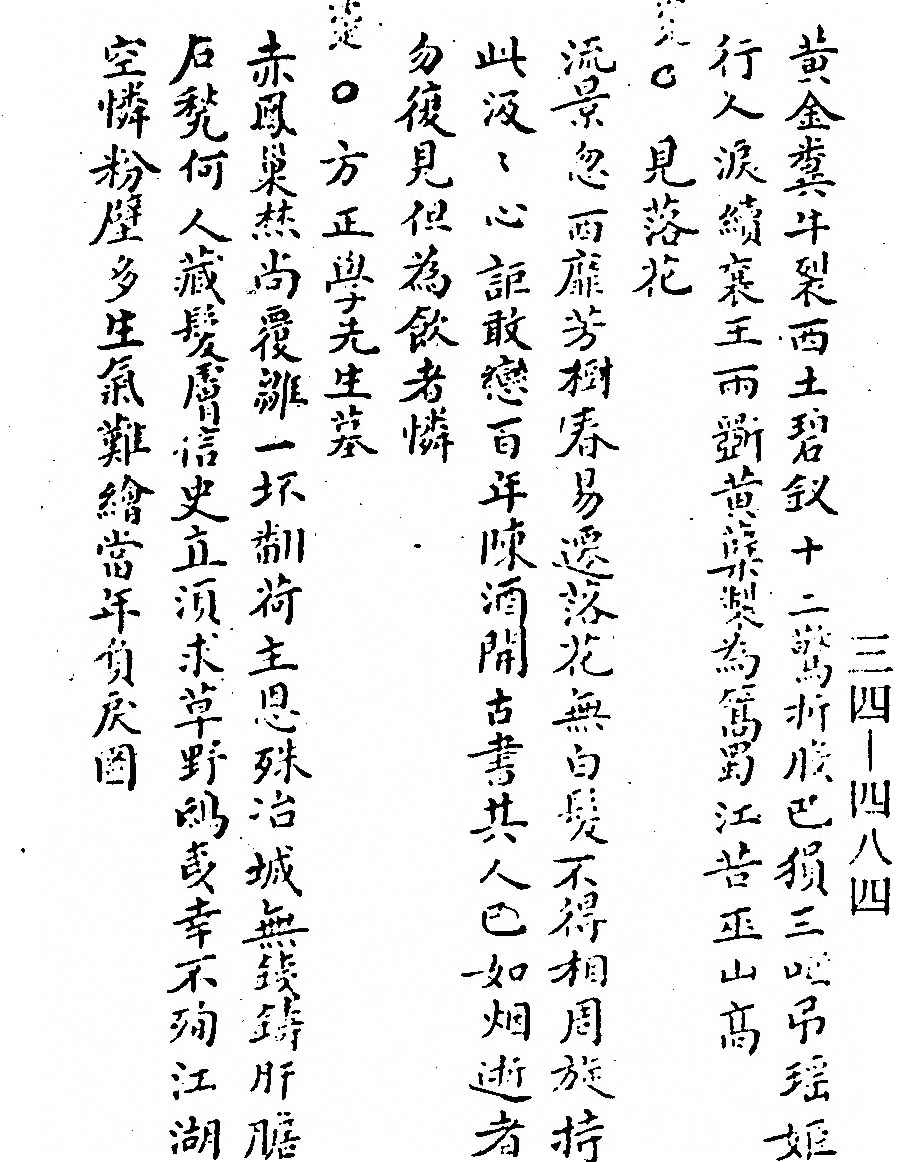 三四—四八四
黃金糞牛裂西土碧釵十二驚折股巴猿三弔瑤姬
行人淚續襄王雨斵黃蘗製為篙蜀江苦巫山高
○見落花
流景忽西靡芳樹春易遷落花無白髮不得相周旋持
此汲〻心詎敢戀百年陳酒開古書其人已如烟逝者
勿復見但為飲者憐
○方正學先生墓
赤鳳巢焚尚覆雛一坏翻荷主恩殊冶城無錢鑄肝膽
石甃何人藏髮膚信史直須求草野鴟夷幸不殉江湖
空憐粉壁多生氣難繪當年負扆圖